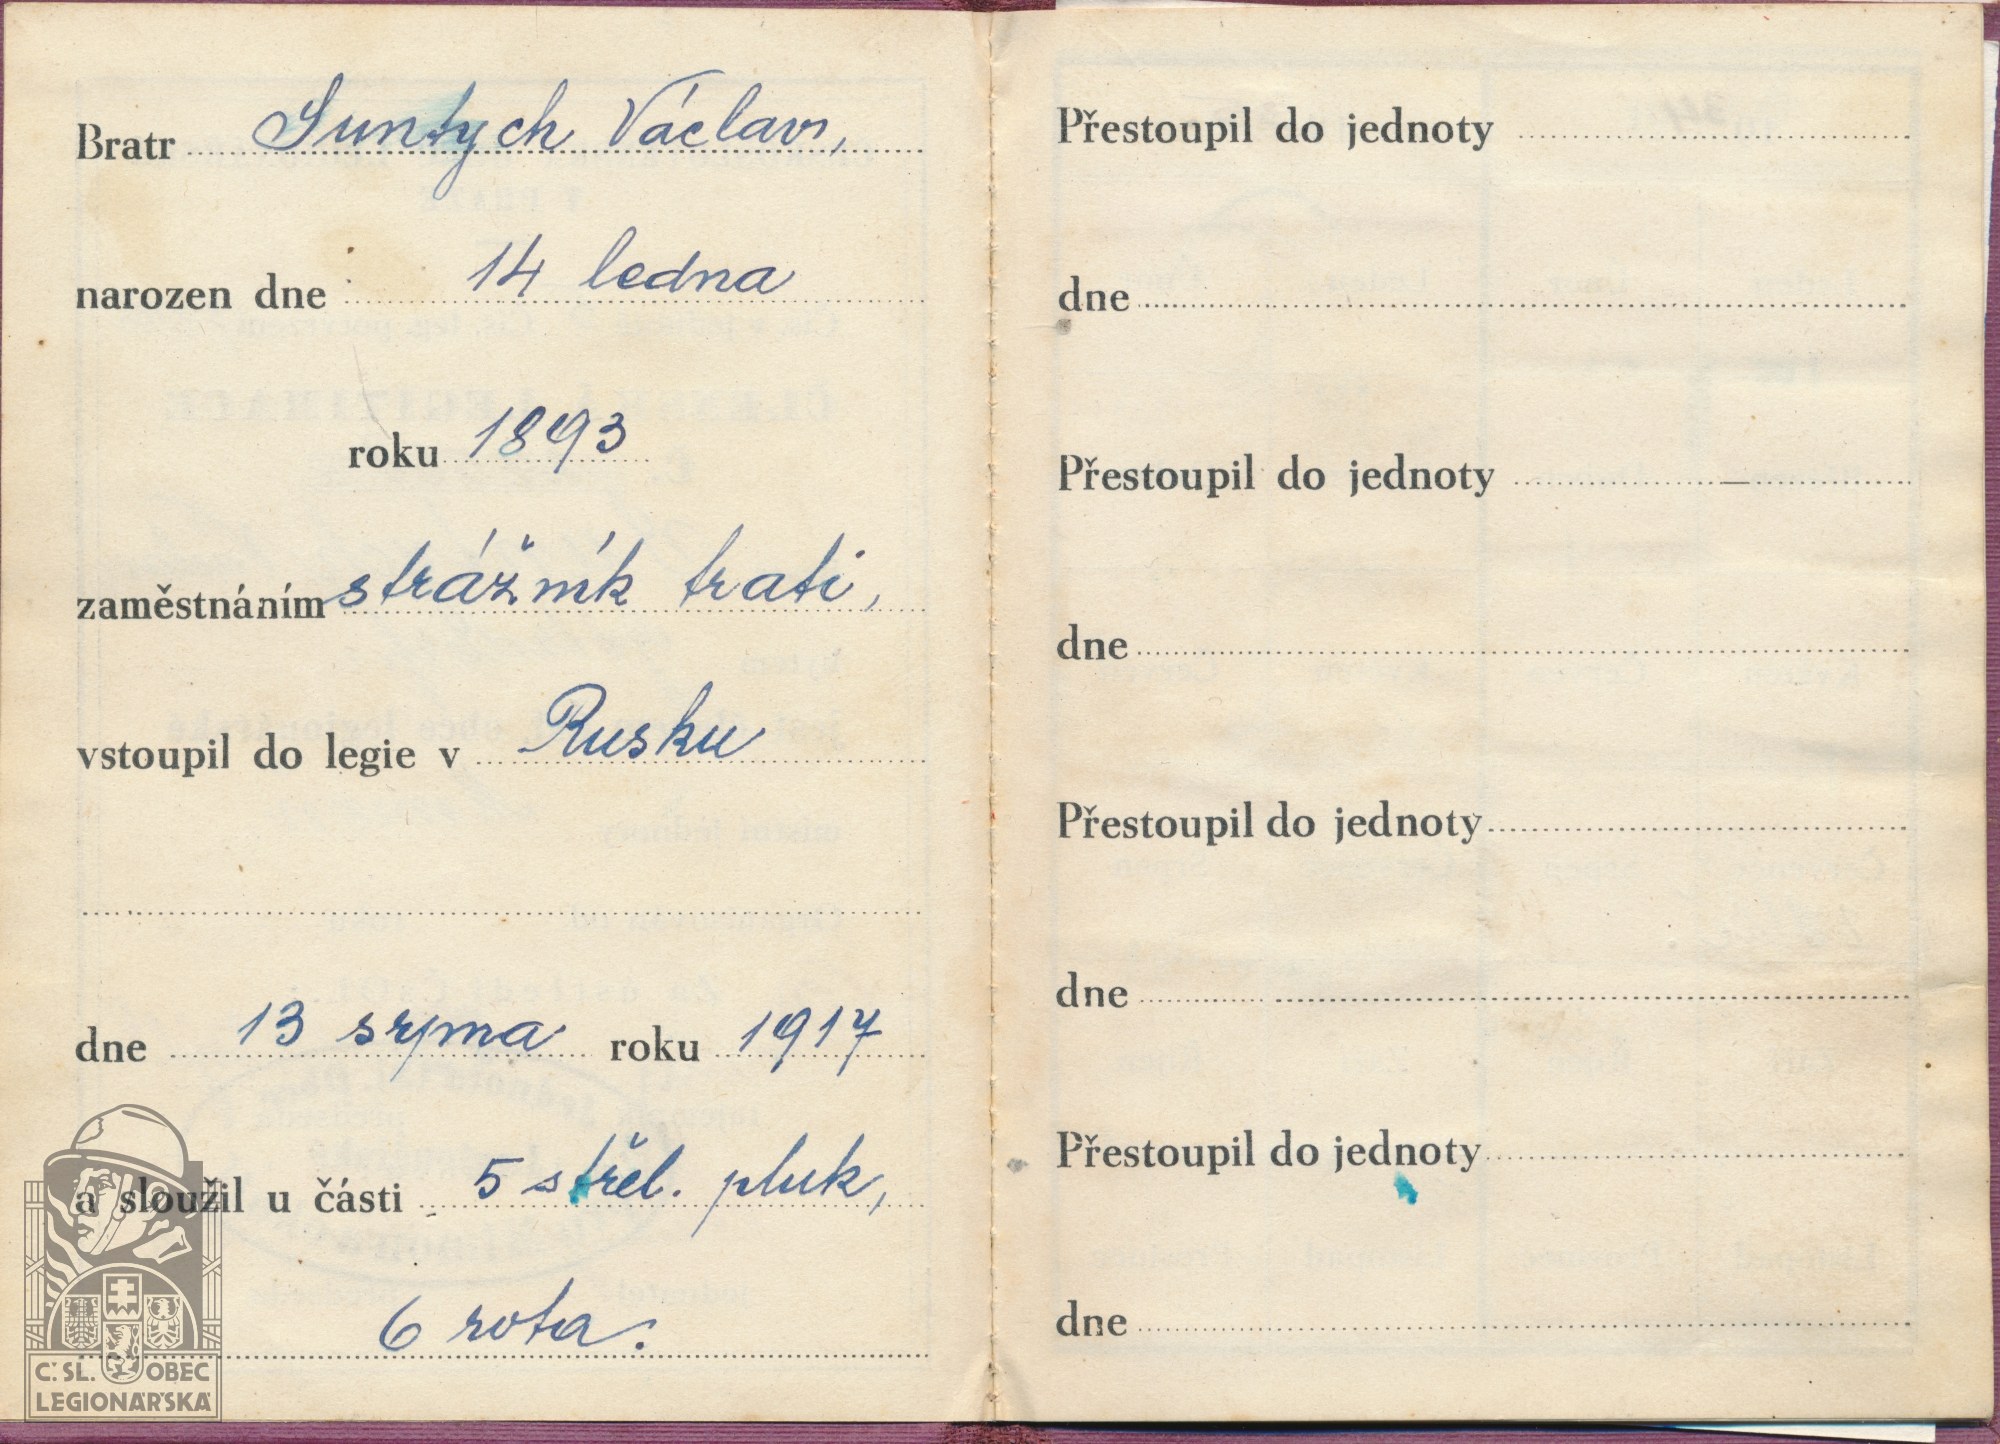 Bratr Suntych Václav,
narozen dne 14 ledna
roku 1893
zaměstnáním strážník trati,
vstoupil do legie v Rusku
dne 13 srpna roku 1917
a sloužil u části 5 střel. pluk,
6 rota.
Č. SL. OBEC
LEGIONÁŘSKÁ
Přestoupil do jednoty
dne
Přestoupil do jednoty
dne
Přestoupil do jednoty
dne
Přestoupil do jednoty
dne